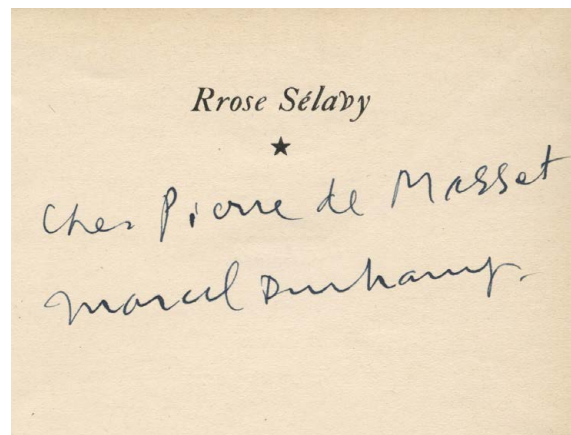 Rrose Sélavy
★
Cher Pierre de Massot
Marcel Duchamp.